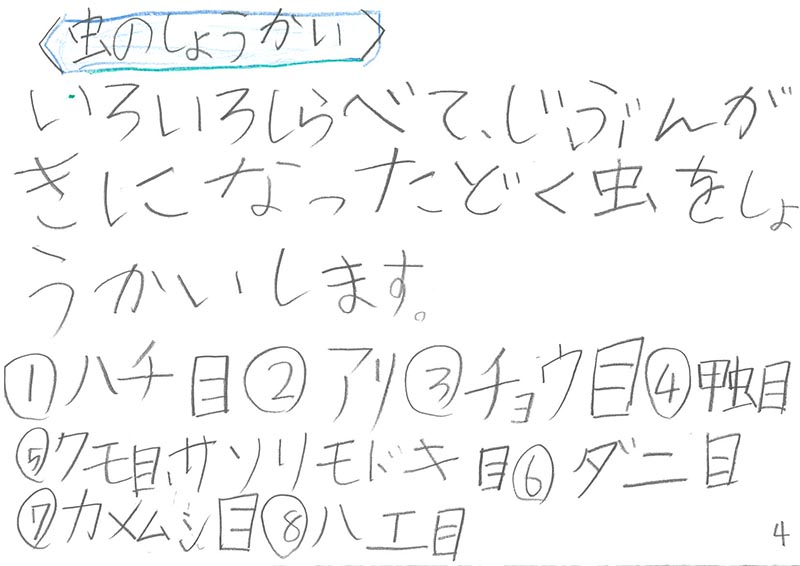 虫のしょうかい
いろいろしらべて、じぶんが
きになったどく虫をしょ
うかいします。
①ハチ目②アリ③チョウ目④甲虫目
⑤クモ目、サソリモドキ目⑥ダニ目
⑦カメムシ目⑧ハエ目
4